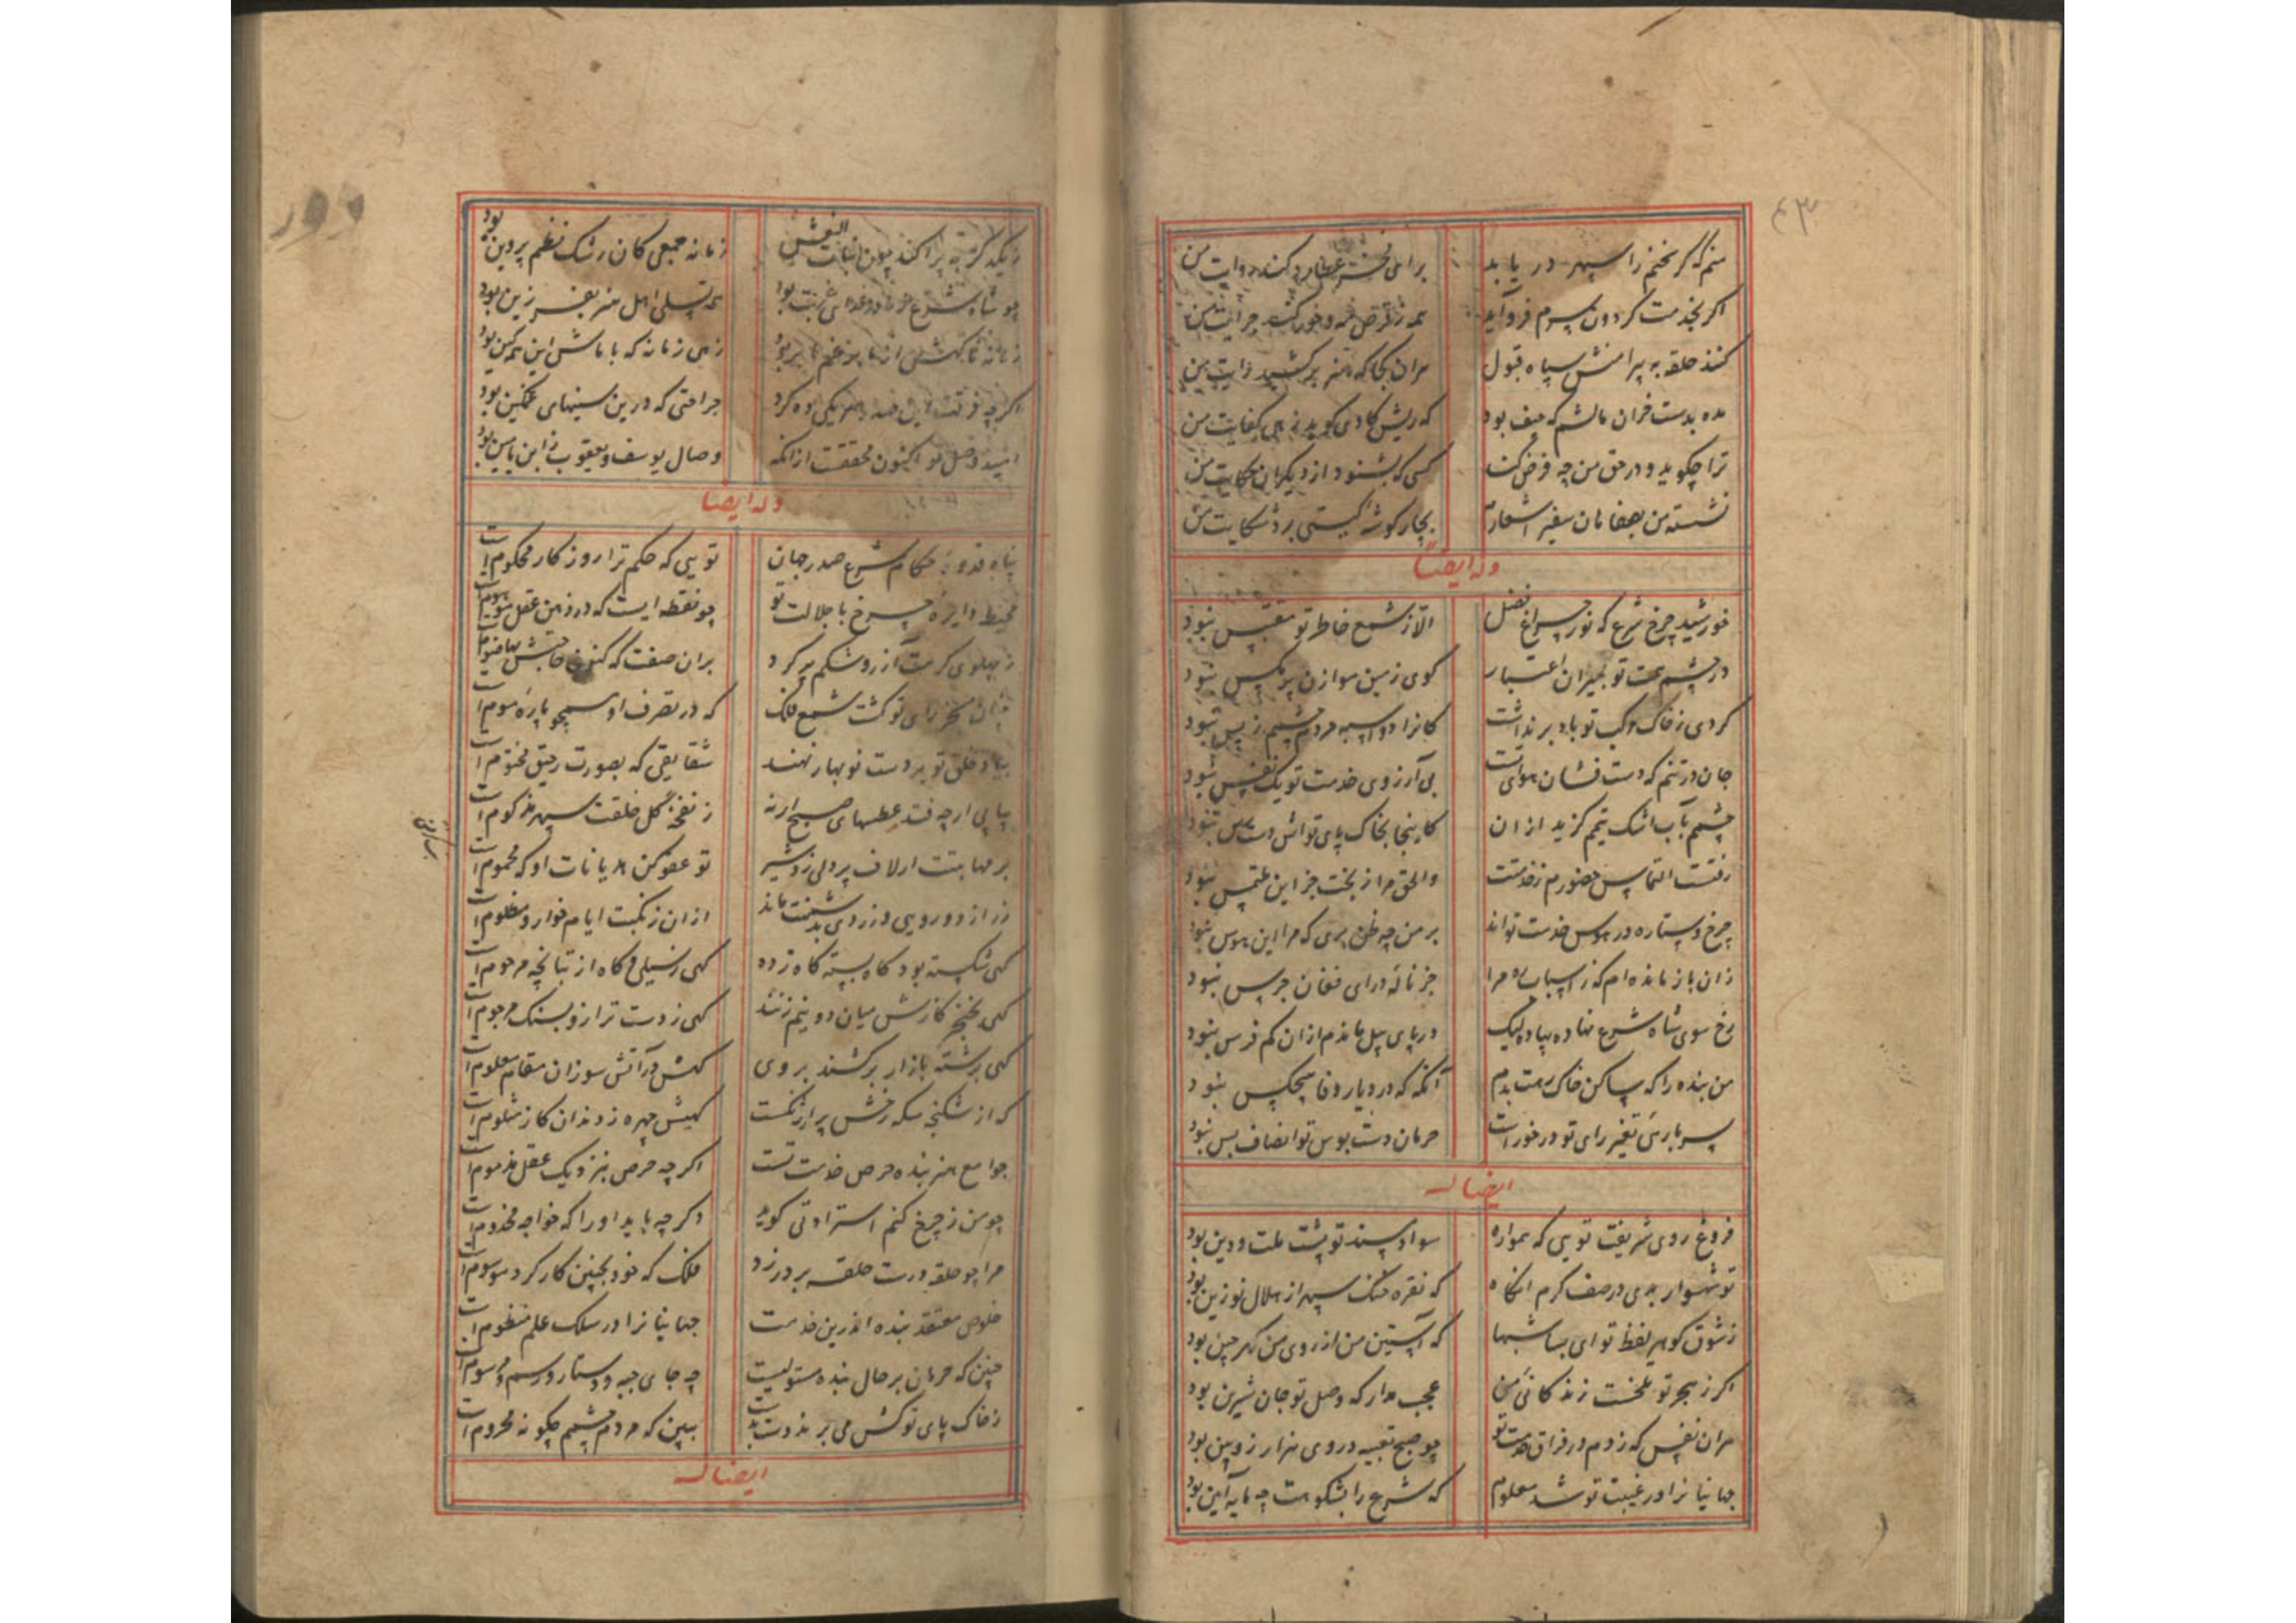 منم که گر سخنم را سپهر در یابد
برای عطارد کند روایت من
اگر بخدمت گردون سرم فرو آید
همه ز قرص مه و خور کند جرایت من
کند حلقه به پیرامنش سپاه قبول
هر آن کجا که هنر برکشید رایت من
مده بدست خران مالشم که حیف بود
که ریش گاوی گوید نه بی کفایت من
ترا چگوید و در حق من چه فرض کند
کسی که بشنود از دیگران حکایت من
نشسته من بصفاهان سفیر اشعارم
بچار گوشه گیتی برد شکایت من
وله ایضا
خورشید چرخ شرع که نور چراغ فضل
الا ز شمع خاطر تو مقتبس نبود
در چشم همت تو بمیزان اعتبار
گوی زمین موازن پر مگس نبود
گردی ز خاک موکب تو باد بر نداشت
کانرا دو اسبه مردم چشم ز پس نبود
جان در تنم که دست فشان هوای تست
بی آرزوی خدمت تو یک نفس نبود
چشمم بآب اشک تیمم گزید از آن
کاینجا بخاک پای تواش دست رس نبود
رفتست التماس حضورم ز خدمتت
والحق مرا ز بخت جز این ملتمس نبود
چرخ و ستاره در هوس خدمت تو اند
بر من چه ظن بری که مرا این هوس نبود
زان باز مانده ام که ز اسباب ره مرا
جز ناله درای فغان جرس نبود
رخ سوی شاه شرع نهاده پیاده لیک
در پای پیل ماندم از آن کم فرس نبود
من بنده را که ساکن خاک رهت بدم
آنگه که در دیار وفا هیچکس نبود
سر باری تغیر رای تو در خورست
حرمان دست بوس تو انصاف بس نبود
ایضا له
فروغ روی شریعت تویی که همواره
سواد مسند تو پشت ملت و دین بود
تو شهسوار بدی در صف کرم آنگاه
که نقره خنگ سپهر از هلال نو زین بود
ز شوق گوهر لفظ تو ای بسا شبها
که آستین من از روی من گهر چین بود
اگر ز هجر تو تلخست زندگانی من
عجب مدار که وصل تو جان شیرین بود
هر آن نفس که زدم در فراق خدمت تو
چو صبح تعبیه در وی هزار زوبین بود
جهانیانرا در غیبت تو شد معلوم
که شرع را بشکوهت چه مایه آیین بود
ز یکدگر به پراکند چون بنات النعش
زمانه جمعی کان رشک نظم پروین بود
همه تسلی اهل هنر بفرزین بود
زهی زمانه که با ماش این همه کین بود
اگر چه فرقت این صدر
جراحتی که درین سینهای غمگین بود
امید وصل تو اکنون محققست از آنکه
وصال یوسف و یعقوب ز ابن یامین بود
وله ایضا
پناه و قدوه حکام شرع صدر جهان
تویی که حکم ترا روزگار محکوم است
محیط دایره چرخ با جلالت تو
چو نقطه ایست که در ذهن عقل موهوم است
ز پهلوی کرمت آز رو شکم پر کرد
بران صفت که کنون
تو گشت شمع فلک
که در تصرف او همچو پاره موم است
بیاد خلق تو بر دست نوبهار نهند
شقایقی که بصورت رحیق مختوم است
پیاپی ار چه فتد عطسهای صبح ارنه
ز نفحه گل خلقت سپهر مزکوم است
بر مهابتت ار لاف پردلی زد شیر
تو عفو کن هذیانات او که محموم است
زر از دورویی و زردی بدشمنت ماند
از ان ز نکبت ایام خوار و مظلوم است
گهی شکسته بود گاه بسته گاه زده
گهی ز سیلی و گاه از تپانچه مرحوم است
گهی بخنجر گازش میان دو نیم زنند
گهی ز دست ترازو بسنگ مرجوم است
گهی برشته بازار برکشند بروی
گهش در آتش سوزان مقام معلوم است
که از شکنجه سکه رخش پر اژنگست
گهیش چهره ز دندان گاز مثلوم است
جوامع هنر بنده حرص خدمت تست
اگر چه حرص بنزدیک عقل مذموم است
چو من ز چرخ کنم استزادتی گوید
دگر چه باید او را که خواجه مخدوم است
مرا چو حلقه درت حلقه بر در زد
فلک که خود بچنین کار کرد موسوم است
خلوص معتقد بنده اندرین خدمت
جهانیانرا در سلک علم منظوم است
چنین که حرمان بر حال بنده مستولیست
چه جای جبه و دستار و رسم و مرسوم است
ز خاک پای تو کش می برند دست بدست
ببین که مردم چشمم چگونه محروم است
ایضا له